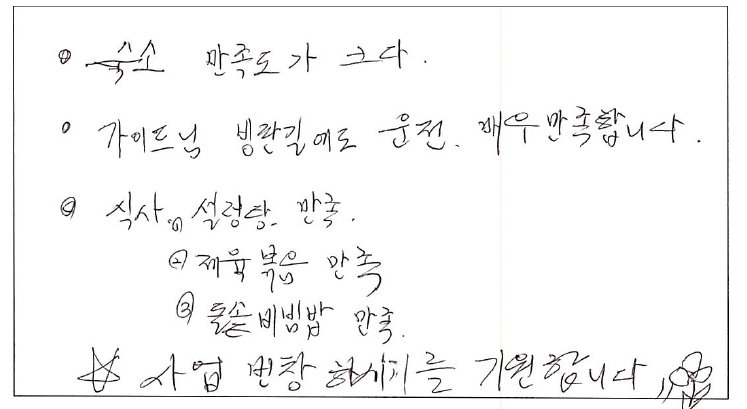 ◎ 숙소 만족도가 크다.
○ 가이드님 빙판길에도 운전. 매우만족합니다.
◎ 식사. ① 설렁탕. 만족.
② 제육볶음 만족
③ 돌솥비빔밥 만족.
☆ 사업 번창하시기를 기원합니다